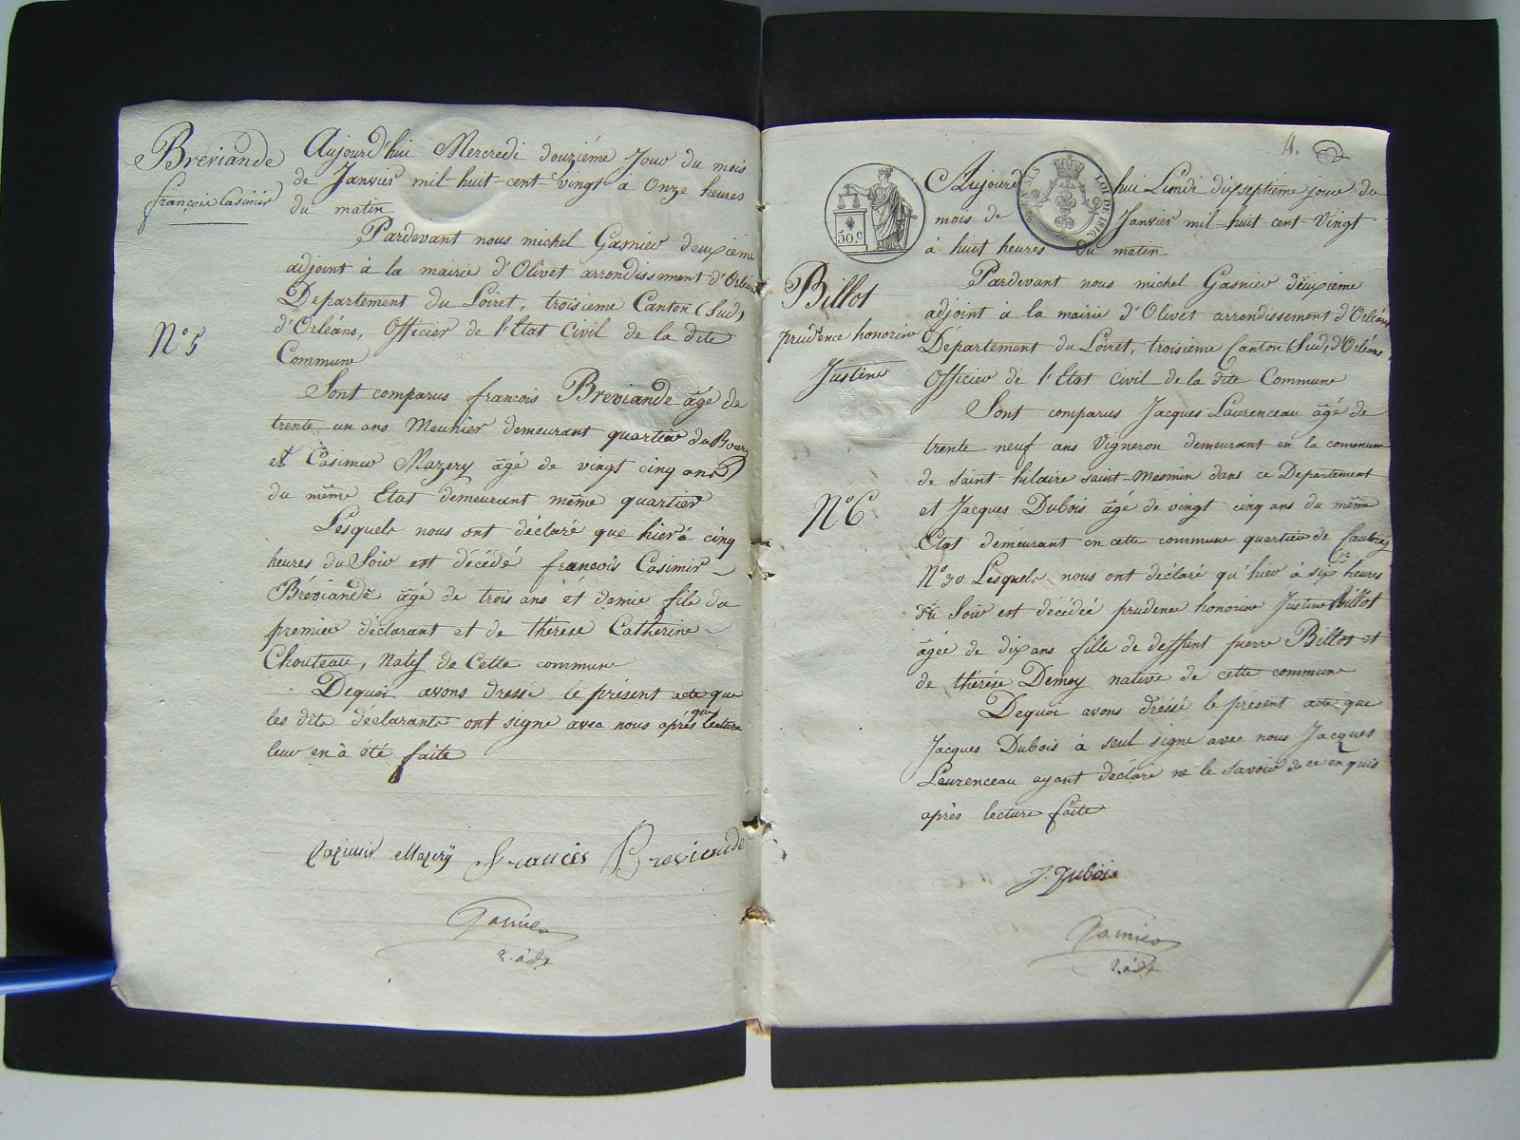 Breviande
françois Casimir
N° 5
Aujourd'hui Mercredi douzième Jour du mois
de Janvier mil-huit-cent-vingt à Onze heures
du matin
Pardevant nous michel Garnier deuxième
adjoint à la mairie d'Olivet arrondissement d'Orléans
Département du Loiret, troisieme Canton (Sud)
d'Orléans, Officier de l'Etat Civil de la dite
Commune
Sont comparus françois Breviande âgé de
trente un ans Meunier demeurant quartier du Bourg
et Casimir Mazery âgé de vingt cinq ans
du même Etat demeurant même quartier
Lesquels nous ont déclaré que hier à cinq
heures du Soir est décédé françois Casimir
Bréviande âgé de trois ans et demie fils du
premier déclarant et de thérèse Catherine
Chouteau, Natif de Cette commune
Dequoi avons dressé le présent acte que
les dits déclarants ont signé avec nous après que lecture
leur en à été faite
Casimir Mazery Francois Breviande
Garnier
2. adjt
4.
50 c
Billot
prudence honorine
Justine
N° 6
Aujourd'hui Lundi dixseptième jour du
mois de Janvier mil-huit cent vingt
à huit heures du matin
Pardevant nous michel Garnier deuxième
adjoint à la mairie d'Olivet arrondissement d'Orléans
Département du Loiret, troisième Canton (Sud) d'Orléans,
Officier de l'Etat Civil de la dite Commune
Sont comparus Jacques Laurenceau âgé de
trente neuf ans Vigneron demeurant en la commune
de Saint hilaire saint-mesmin dans ce Departement
et Jacques Dubois âgé de vingt cinq ans du même
Etat demeurant en cette commune quartier de
N° 30 Lesquels nous ont déclaré qu'hier à six heures
du Soir est décédée prudence honorine Justine Billot
âgée de dix ans fille de deffunt pierre Billot et
de thérèse Demoy native de cette commune
Dequoi avons dressé le présent acte que
Jacques Dubois à seul signé avec nous Jacques
Laurenceau ayant déclaré ne le savoir de ce enquis
après lecture faite
J. Dubois
Garnier
2. adjt